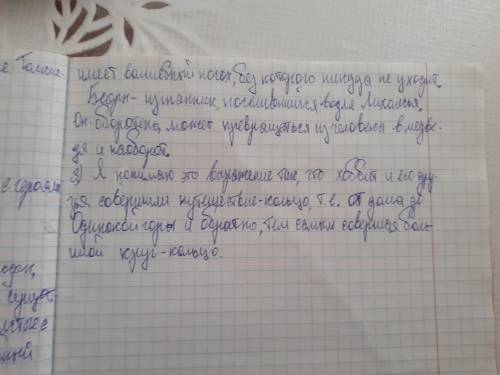 е. Толкие-
имеет волшебный посох, без которого никуда не уходит.
Беорн - изгнанник, поселившийся возле Лихолесья.
Он оборотень, может превращаться из человека в медве-
дя и наоборот.
3) Я понимаю это выражение так, что хоббит и его дру-
зья совершили путешествие-кольцо, т.е. от дома до
Одинокой горы и обратно, тем самым совершая боль-
шой круг-кольцо.
с героями
сущест